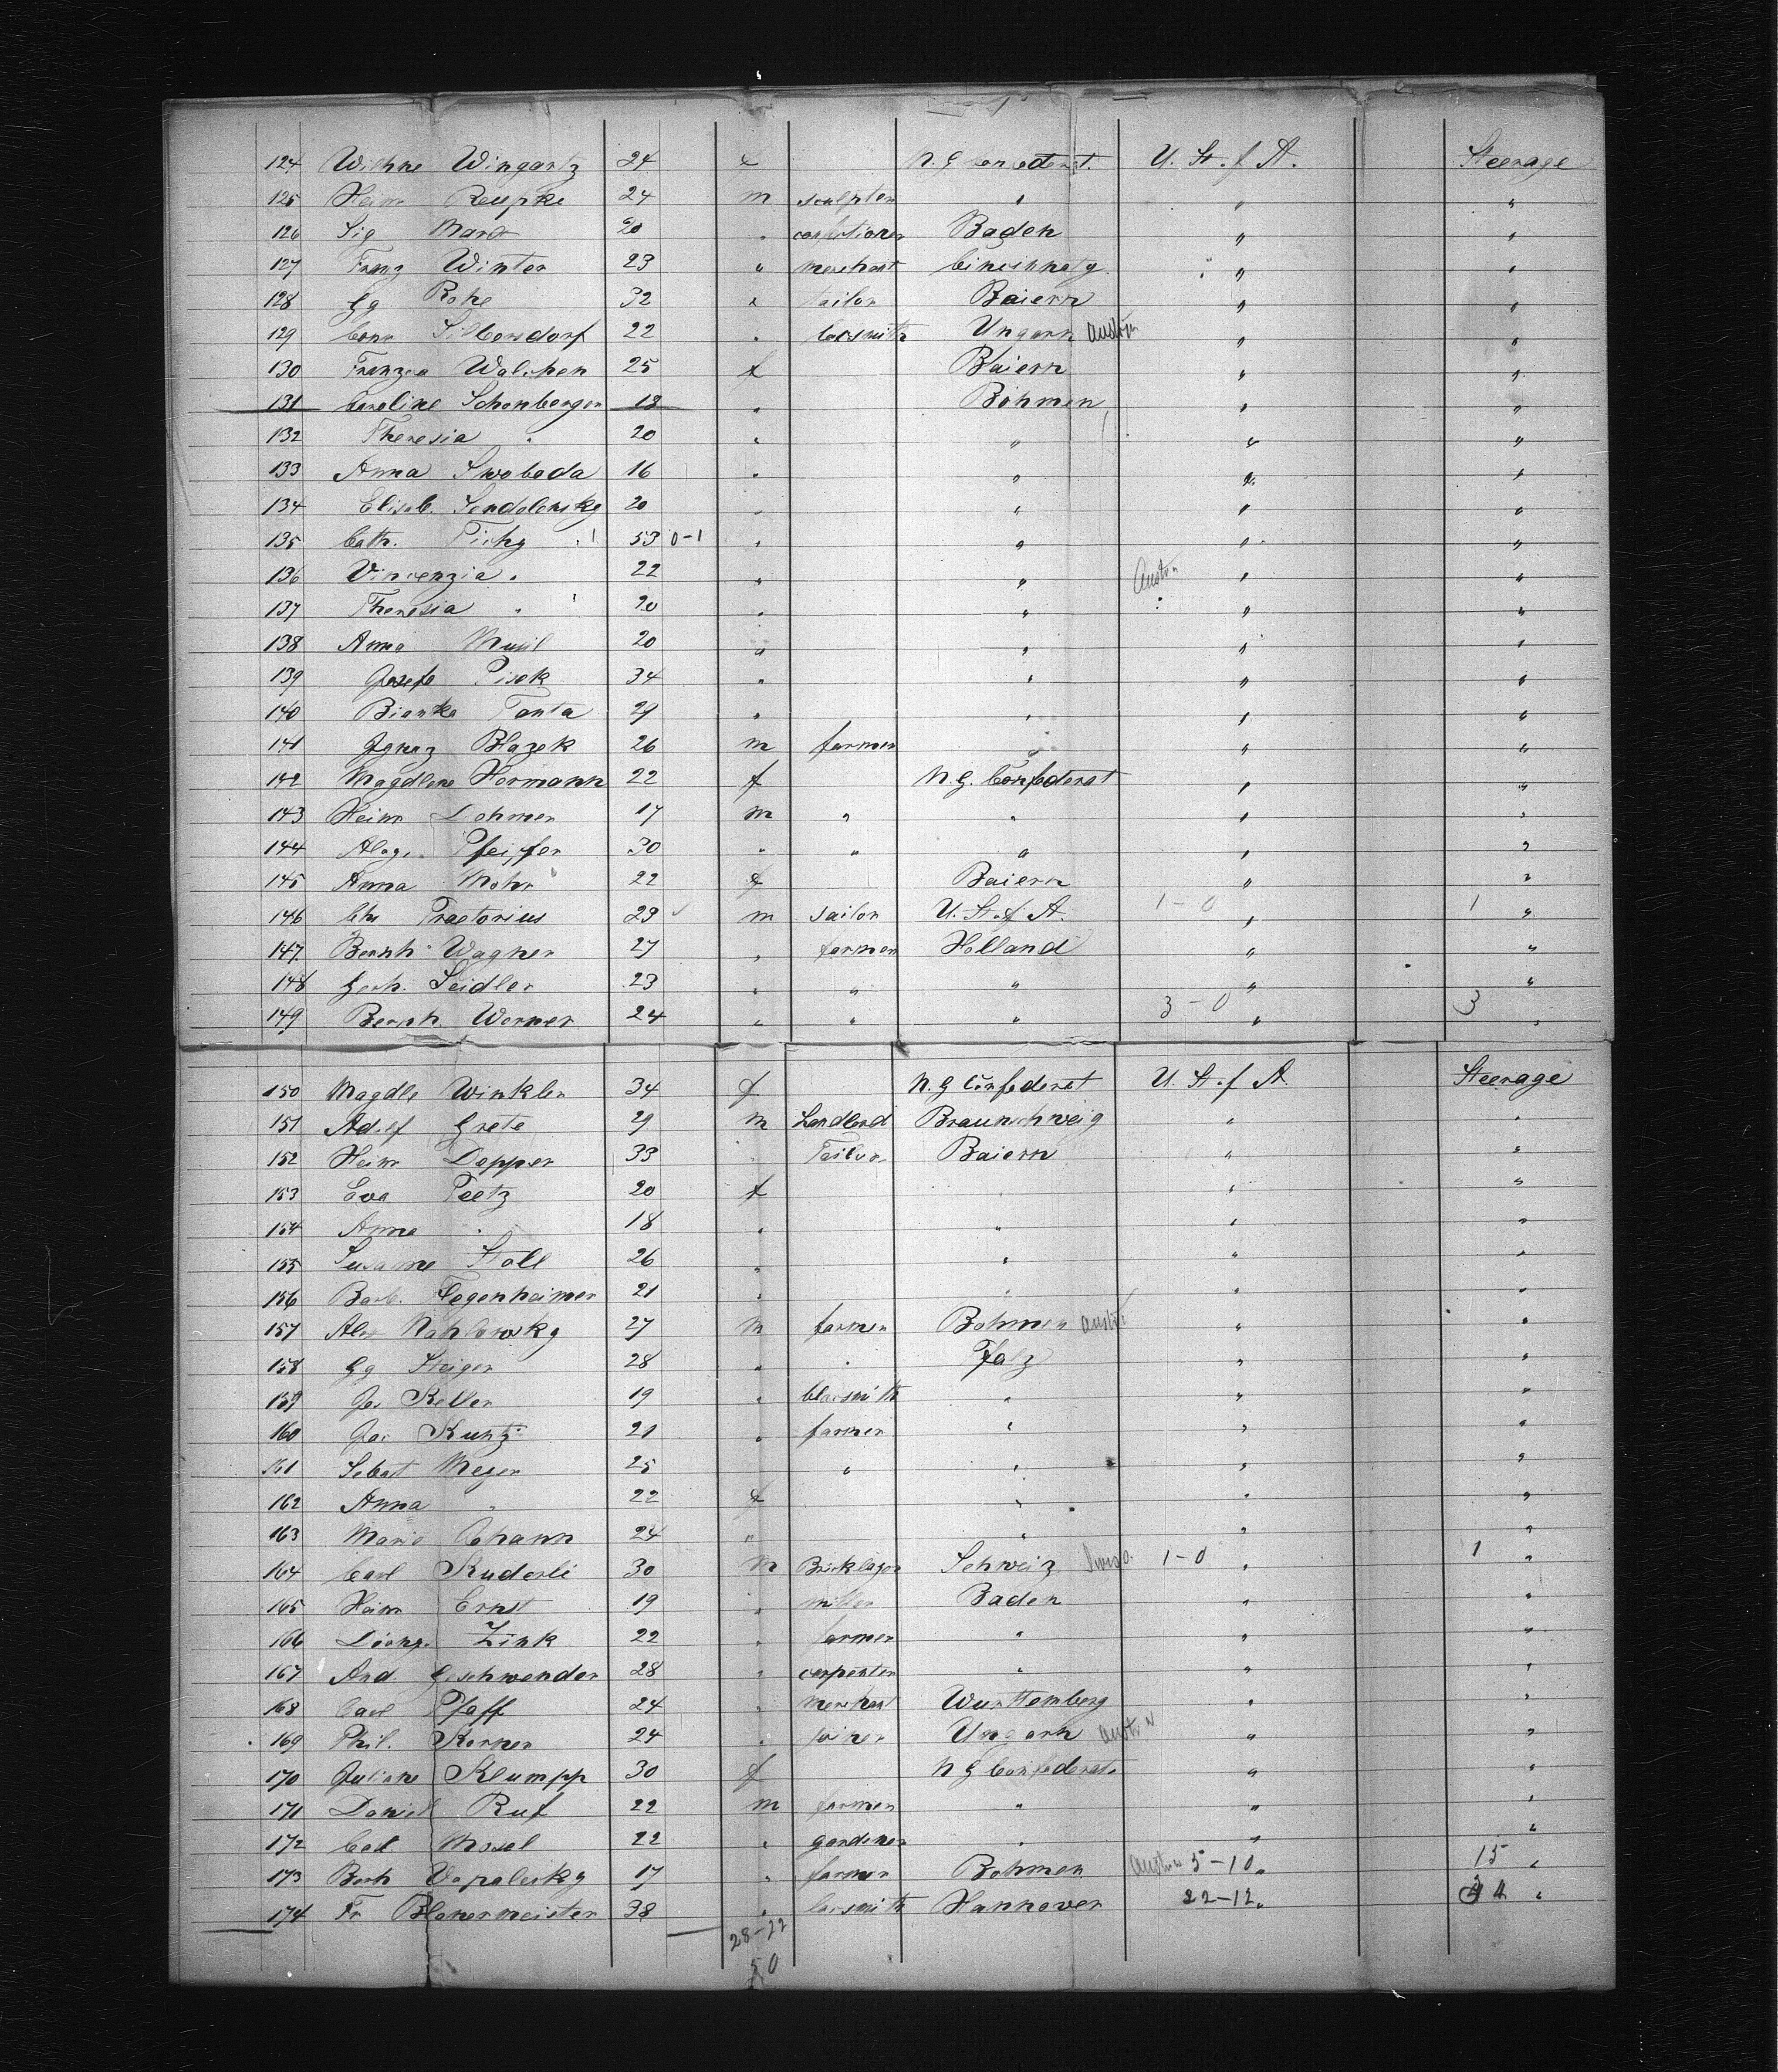 124 Wilhne Wingartz 24 f N. G Confederat. U. St. f A. Steerage
125 Heinr Reupke 24 m sculptor " " "
126 Sig Marx 20 " confectioner Baden " "
127 Franz Winter 23 " merchant Cincinnaty " "
128 Gg Rohe 32 " tailor Baiern " "
129 Conr Silbersdorf 22 " locsmith Ungarn Austria " "
130 Franzca Walchen 25 f Baiern " "
131 Caroline Schonberger 18 " Böhmen " "
132 Theresia " 20 " " " "
133 Anna Swoboda 16 " " " "
134 Elisab. Sendolensky 20 " " " "
135 Cath. Tichy 53 0-1 " " " "
136 Vincenzia " 22 " " Austria " "
137 Theresia " 20 " " " "
138 Anna Musil 20 " " " "
139 Josefa Pisek 34 " " " "
140 Bianka Fanta 29 " " " "
141 Ignaz Blazek 26 m farmer " " "
142 Magdlene Hermann 22 f N. G. Confederat " "
143 Heinr Lohmer 17 m " " " "
144 Aloys Pfeiffer 30 " " " " "
145 Anna Mohr 22 f Baiern " "
146 Chr Praetorius 23 m sailor U. St. f A. 1-0 " 1 "
147. Bernh Wagner 27 " farmer Holland " "
148 Gerh. Seidler 23 " " " " "
149 Bernh. Werner 24 " " " 3-0 " 3 "
150 Magdle Winkler 34 f N. G Confederat U. St. f A. Steerage
151 Adolf Grete 29 m Landlord Braunschweig " "
152 Heinr Dopper 33 " Tailor Baiern " "
153 Eva Peetz 20 f " " "
154 Anna " 18 " " " "
155 Susanne Stoll 26 " " " "
156 Barb. Fegenheimer 21 " " " "
157 Alex Nahlowsky 27 m farmer Bohmen Austria " "
158 Gg Steiger 28 " " Pfalz " "
159 Jos Keller 19 " blacsmith " " "
160 Jos Kuntz 21 " farmer " " "
161 Sebast Meyer 25 " " " "
162 Anna " 22 f " " "
163 Maria Johann 24 " " " "
164 Carl Kuderli 30 m Bricklayer Schweiz Swiss 1-0 " 1 "
165 Heinr Ernst 19 " miller Baden " "
166 Leong. Zink 22 " farmer " " "
167 And. Geschwender 28 " carpenter " " "
168 Carl Pfaff 24 " merchant Wurttemberg " "
169 Phil. Korner 24 " joiner Ungarn Austria " "
170 Juliane Klumpp 30 f N G Confederat. " "
171 Daniel Ruf 22 m farmer " " "
172 Carl Mosel 22 " gardener " " "
173 Bernh Vopalesky 17 " farmer Bohmen Austria 5-10 " 15 "
174 Fr Blanermeister 38 " locsmith Hannover 22-12 " 34 "
28-22
50